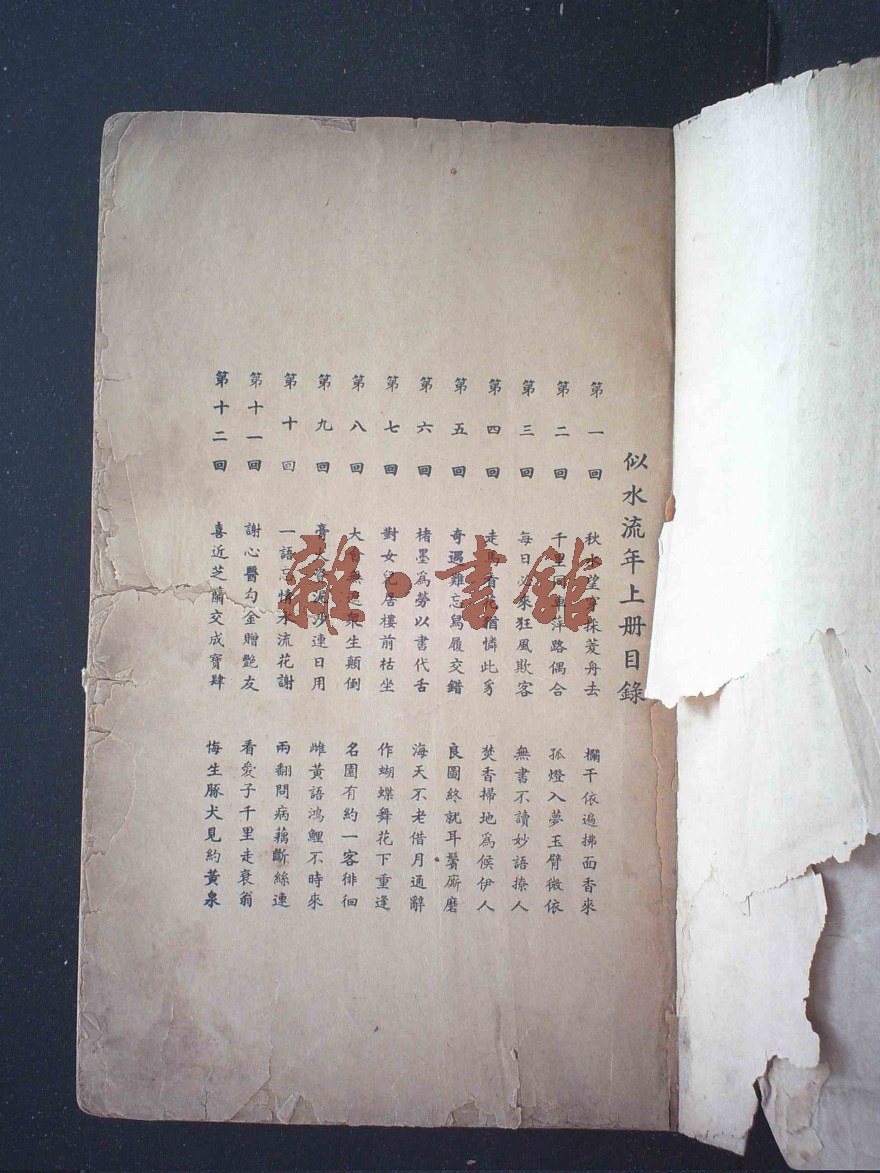 似水流年上册目錄
第一回 秋水望穿採菱舟去 欄干依遍拂面香來
第二回 千里同車萍路偶合 孤燈入夢玉臂微依
第三回 每日必來狂風欺客 無書不讀妙語撩人
第四回 走馬看花猶憐此豸 焚香掃地爲候伊人
第五回 奇遇難忘舃履交錯 良圖終就耳鬢廝磨
第六回 楮墨爲勞以書代舌 海天不老借月通辭
第七回 對女兒居樓前枯坐 作蝴蝶舞花下重逢
第八回 大會無遮衆生顛倒 名園有約一客徘徊
第九回 膏火資源沙連日用 雌黃語鴻鯉不時來
第十回 一語忘情水流花謝 兩翻問病藕斷絲連
第十一回 謝心醫勾金贈艷友 看愛子千里走衰翁
第十二回 喜近芝蘭交成寶肆 悔生豚犬見約黃泉
雜·書館